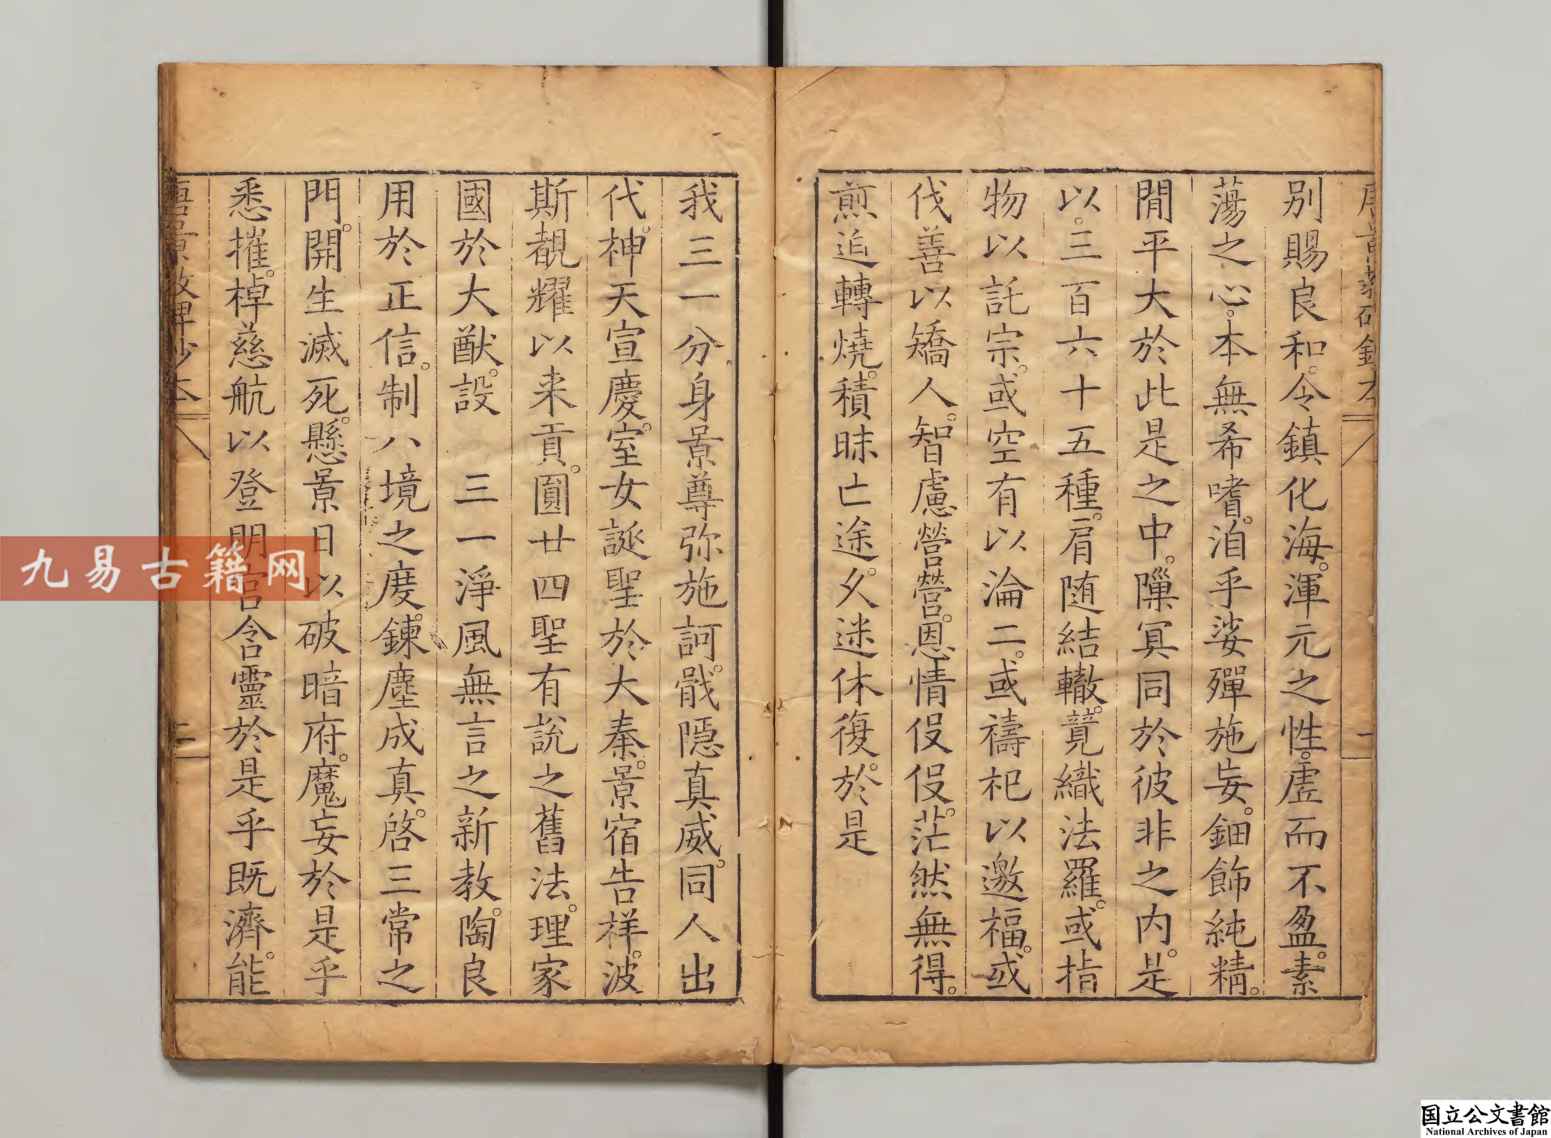 別賜良和。令鎮化海。渾元之性。虛而不盈。素
蕩之心。本無希嗜。洎乎娑殫施妄。鈿飾純精。
閒平大於此是之中。隟冥同於彼非之內。是
以。三百六十五種。肩随結轍。竸織法羅。或指
物以託宗。或空有以淪二。或禱祀以邀福。或
伐善以矯人。智慮營營。恩情伇伇。茫然無得。
煎迫轉燒。積昧亡途。久迷休復。於是
我三一分身景尊弥施訶。戢隠真威。同人出
代。神天宣慶。室女誕聖於大秦。景宿告祥。波
斯覩耀以来貢。圓廿四聖有說之舊法。理家
國於大猷。設 三一淨風無言之新教。陶良
用於正信。制八境之度。鍊塵成真。啓三常之
門。開生滅死。懸景日以破暗府。魔妄於是乎
悉摧。棹慈航以登明宮含靈於是乎既濟。能
二
九易古籍网
国立公文書館
National Archives of Japan